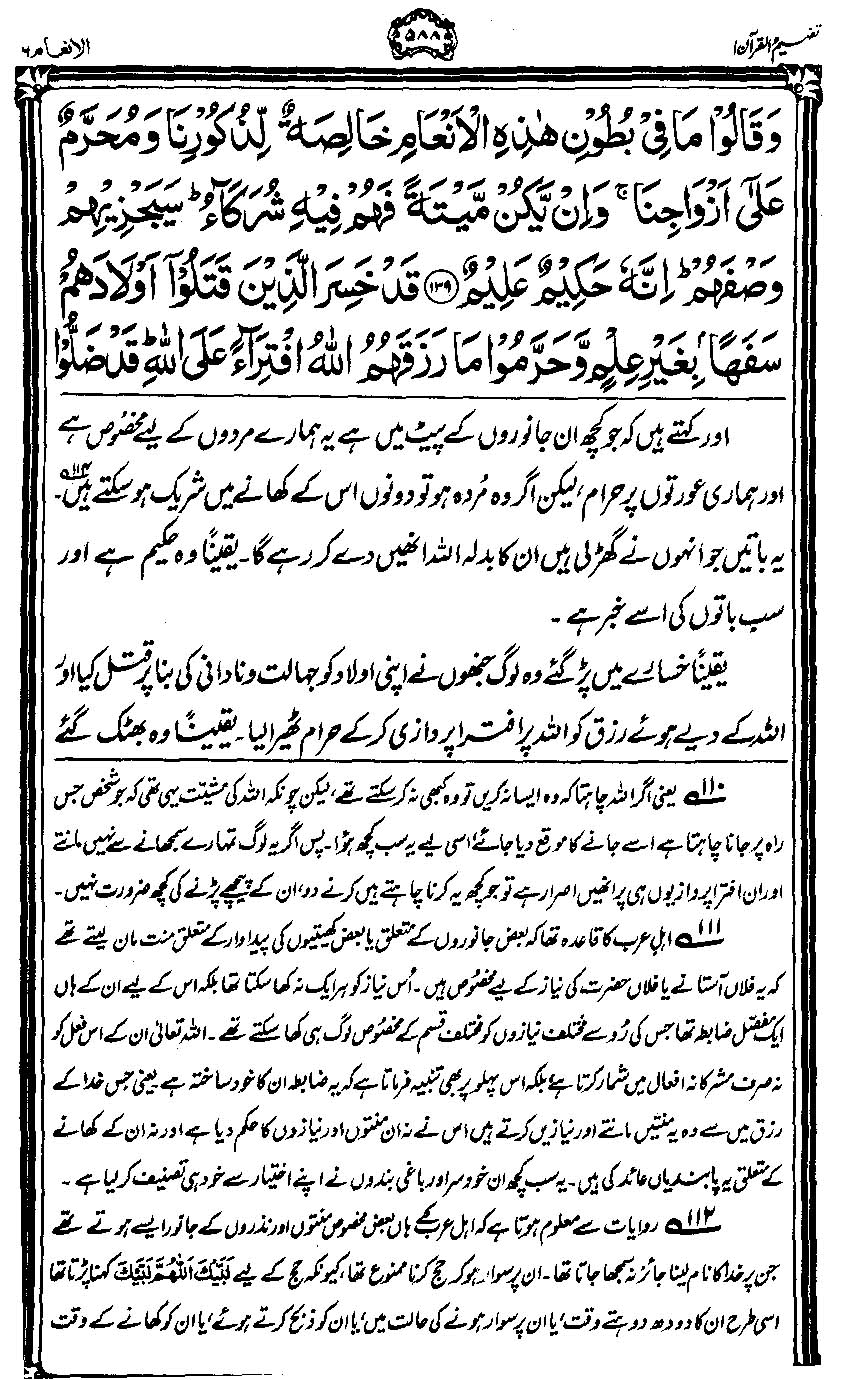 تفہیم القرآن ۱
۵۸۸
الانعام ۶
وَقَالُوْا مَا فِیْ بُطُوْنِ هٰذِهِ الْاَنْعَامِ خَالِصَةٌ لِّذُكُوْرِنَا وَمُحَرَّمٌ
عَلٰۤی اَزْوَاجِنَا ۚ وَاِنْ یَّكُنْ مَّیْتَةً فَهُمْ فِیْهِ شُرَكَآءُ ؕ سَیَجْزِیْهِمْ
وَصْفَهُمْ ؕ اِنَّهٗ حَكِیْمٌ عَلِیْمٌ ﴿۱۳۹﴾ قَدْ خَسِرَ الَّذِیْنَ قَتَلُوْۤا اَوْلَادَهُمْ
سَفَهًاۢ بِغَیْرِ عِلْمٍ وَّحَرَّمُوْا مَا رَزَقَهُمُ اللّٰهُ افْتِرَآءً عَلَی اللّٰهِ ؕ قَدْ ضَلُّوْا
اور کہتے ہیں کہ جو کچھ ان جانوروں کے پیٹ میں ہے یہ ہمارے مردوں کے لیے مخصوص ہے
اور ہماری عورتوں پر حرام، لیکن اگر وہ مُردہ ہو تو دونوں اس کے کھانے میں شریک ہو سکتے ہیں۔۱۱۲؎
یہ باتیں جو انہوں نے گھڑ لی ہیں ان کا بدلہ اللہ انھیں دے کر رہے گا۔ یقیناً وہ حکیم ہے اور
سب باتوں کی اسے خبر ہے۔
یقیناً خسارے میں پڑ گئے وہ لوگ جنھوں نے اپنی اولاد کو جہالت و نادانی کی بنا پر قتل کیا اور
اللہ کے دیے ہوئے رزق کو اللہ پر افترا پردازی کر کے حرام ٹھیرا لیا۔ یقیناً وہ بھٹک گئے
۱۱۰؎ یعنی اگر اللہ چاہتا کہ وہ ایسا نہ کریں تو وہ کبھی نہ کر سکتے تھے، لیکن چونکہ اللہ کی مشیّت یہی تھی کہ جو شخص جس
راہ پر جانا چاہتا ہے اسے جانے کا موقع دیا جائے، اسی لیے یہ سب کچھ ہوا۔ پس اگر یہ لوگ تمہارے سمجھانے سے نہیں مانتے
اور ان افترا پردازیوں ہی پر انھیں اصرار ہے تو جو کچھ یہ کرنا چاہتے ہیں کرنے دو، ان کے پیچھے پڑنے کی کچھ ضرورت نہیں۔
۱۱۱؎ اہلِ عرب کا قاعدہ تھا کہ بعض جانوروں کے متعلق یا بعض کھیتیوں کی پیداوار کے متعلق منت مان لیتے تھے
کہ یہ فلاں آستانے یا فلاں حضرت کی نیاز کے لیے مخصوص ہیں۔ اُس نیاز کو ہر ایک نہ کھا سکتا تھا بلکہ اس کے لیے ان کے ہاں
ایک مفصّل ضابطہ تھا جس کی رُو سے مختلف نیازوں کو مختلف قسم کے مخصوص لوگ ہی کھا سکتے تھے۔ اللہ تعالیٰ ان کے اس فعل کو
نہ صرف مشرکانہ افعال میں شمار کرتا ہے، بلکہ اس پہلو پر بھی تنبیہ فرماتا ہے کہ یہ ضابطہ ان کا خود ساختہ ہے یعنی جس خدا کے
رزق میں سے وہ یہ منتیں مانتے اور نیازیں کرتے ہیں اس نے نہ ان منتوں اور نیازوں کا حکم دیا ہے اور نہ ان کے کھانے
کے متعلق یہ پابندیاں عائد کی ہیں۔ یہ سب کچھ ان خود سر اور باغی بندوں نے اپنے اختیار سے خود ہی تصنیف کر لیا ہے۔
۱۱۲؎ روایات سے معلوم ہوتا ہے کہ اہلِ عرب کے ہاں بعض مخصوص منتوں اور نذروں کے جانور ایسے ہوتے تھے
جن پر خدا کا نام لینا جائز نہ سمجھا جاتا تھا۔ ان پر سوار ہو کر حج کرنا ممنوع تھا، کیونکہ حج کے لیے لَبَّیْکَ اَللّٰھُمَّ لَبَّیْکَ کہنا پڑتا تھا
اسی طرح ان کا دودھ دوہتے وقت، یا ان پر سوار ہونے کی حالت میں، یا ان کو ذبح کرتے ہوئے، یا ان کو کھانے کے وقت